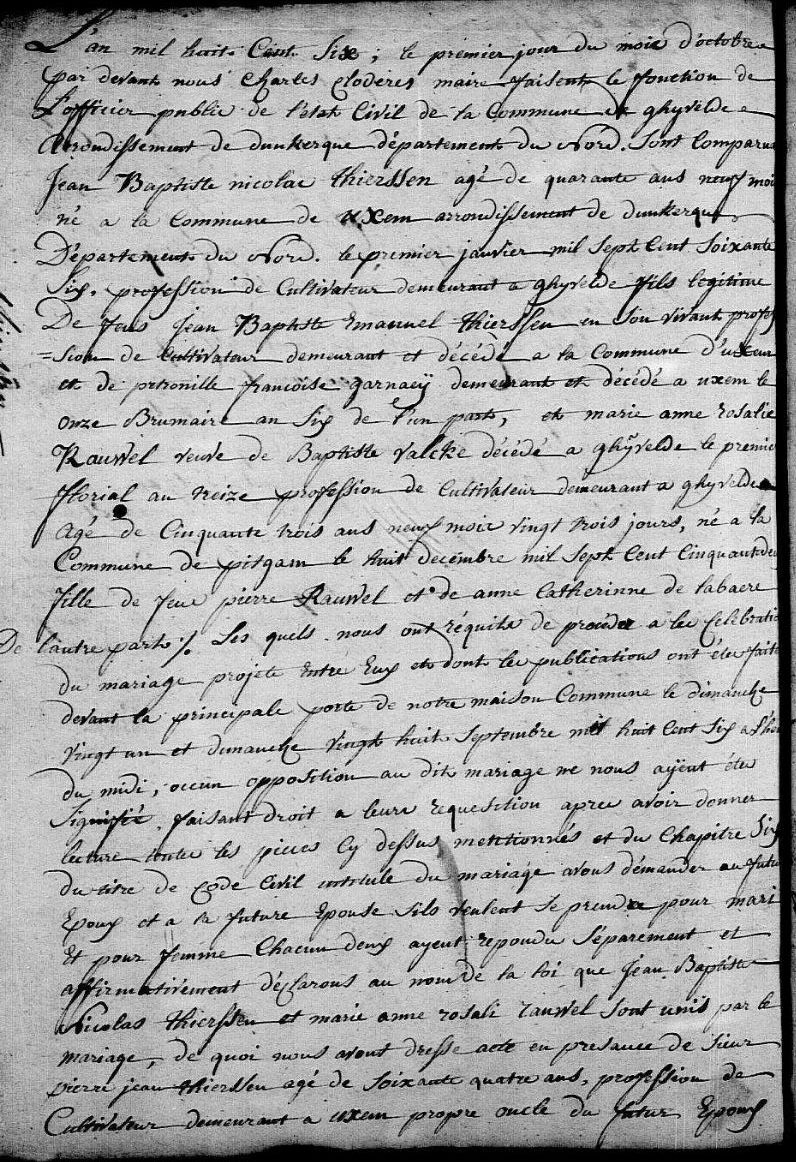 L'an mil huit Cent Six ; le premier jour du mois d'octobre
par devant nous Charles Cloderes maire faisent le fonction de
L'officier public de l'etat Civil de la Commune de ghyvelde
arrondissement de dunkerque département du Nord. Sont Comparus
Jean Baptiste nicolas thierssen agé de quarante ans neuf mois
né a la Commune de uxem arrondissement de dunkerque
Département du Nord. le premier janvier mil Sept Cent Soixante
Six, profession de Cultivateur demeurant a ghyvelde fils legitime
De feus Jean Baptiste Emanuel thierssen en Son vivant profes
=sion de Cultivateur demeurant et décédé a la Commune d'uxem
et de petronille francoise garnaeÿ demeurant et décédé a uxem le
onze Brumaire an Six de l'un part, et marie anne rosalie
Rauwel veuve de Baptiste valcke décédé a ghÿvelde le premier
florial an treize profession de Cultivateur demeurant a ghyvelde
agé de Cinquante trois ans neuf mois vingt trois jours, né a la
Commune de pitgam le huit decembre mil Sept Cent Cinquante deu
fille de feue pierre Rauwel et de anne Catherinne de labaere
De l'autre part %. Les quels nous ont réquits de procéder a la Celebratio
du mariage projeté entre Eux et dont les publications ont été faite
devant la principale porte de notre maison Commune le dimanche
vingt un et dimanche vingt huit Septembre mil huit Cent Six a l'heu
du midi, occun opposition au dit mariage ne nous aÿent été
Signifié, faisant droit a leurs requesition apres avoir donner
lecture toute les pieces Cy dessus mentionnés et du Chapitre Six
du titre de Code Civil intitulé du mariage avons démander au futu
Epoux et a la future Epouse Sils veulent Se prendre pour mari
Et pour femme Chacun deux ayent repondu Séparement et
affirmativement déclarons au nom de la loi que Jean Baptiste
Nicolas thierssen et marie anne rosali rauwel Sont unis par le
mariage, de quoi nous avont dresse acte en presance de Sieur
pierre jean thierssen agé de Soixante quatre ans, profession de
Cultivateur demeurant a uxem propre oncle du futur Epoux